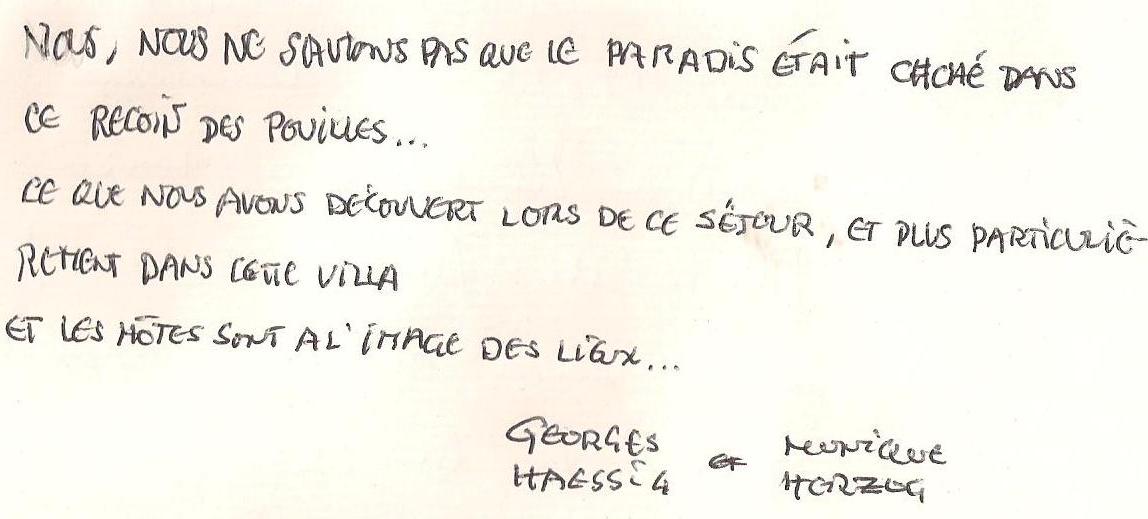 NOUS, NOUS NE SAVIONS PAS QUE LE PARADIS ÉTAIT CACHÉ DANS
CE RECOIN DES POUILLES...
CE QUE NOUS AVONS DÉCOUVERT LORS DE CE SÉJOUR, ET PLUS PARTICULIÈ-
REMENT DANS CETTE VILLA
ET LES HÔTES SONT A L'IMAGE DES LIEUX...
GEORGES HAESSIG et MONIQUE HERZOG